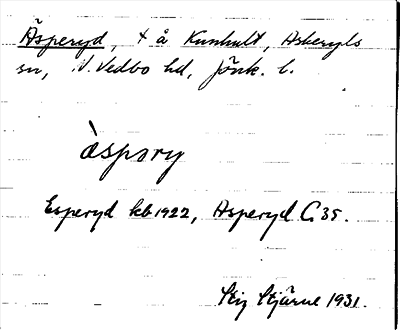 Äsperyd, t å Kunhult, Askeryds
sn, N. Vedbo hd, Jönk. l.
àspəry
Esperyd kb 1922, Asperyd G 35.
Stig Stjärne 1931.